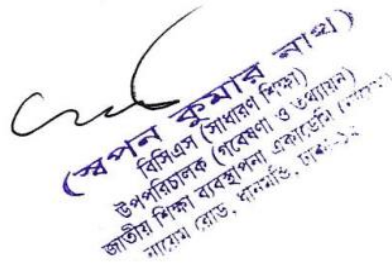 (স্বপন কুমার নাথ)
বিসিএস (সাধারণ শিক্ষা)
উপপরিচালক (গবেষণা ও তথ্যায়ন)
জাতীয় শিক্ষা ব্যবস্থাপনা একাডেমি
নায়েম রোড, ধানমন্ডি, ঢাকা-১২